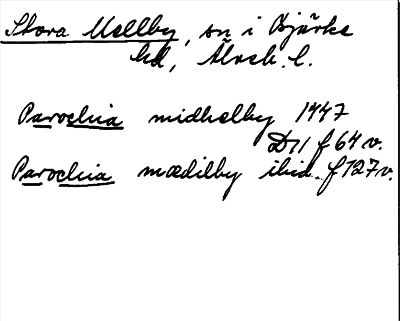 Stora Mellby, sn i Bjärke
hd, Älvsb. l.
Parochia midhelby 1447
D 11 f 64 v.
Parochia mædilby ibid. f 127 v.